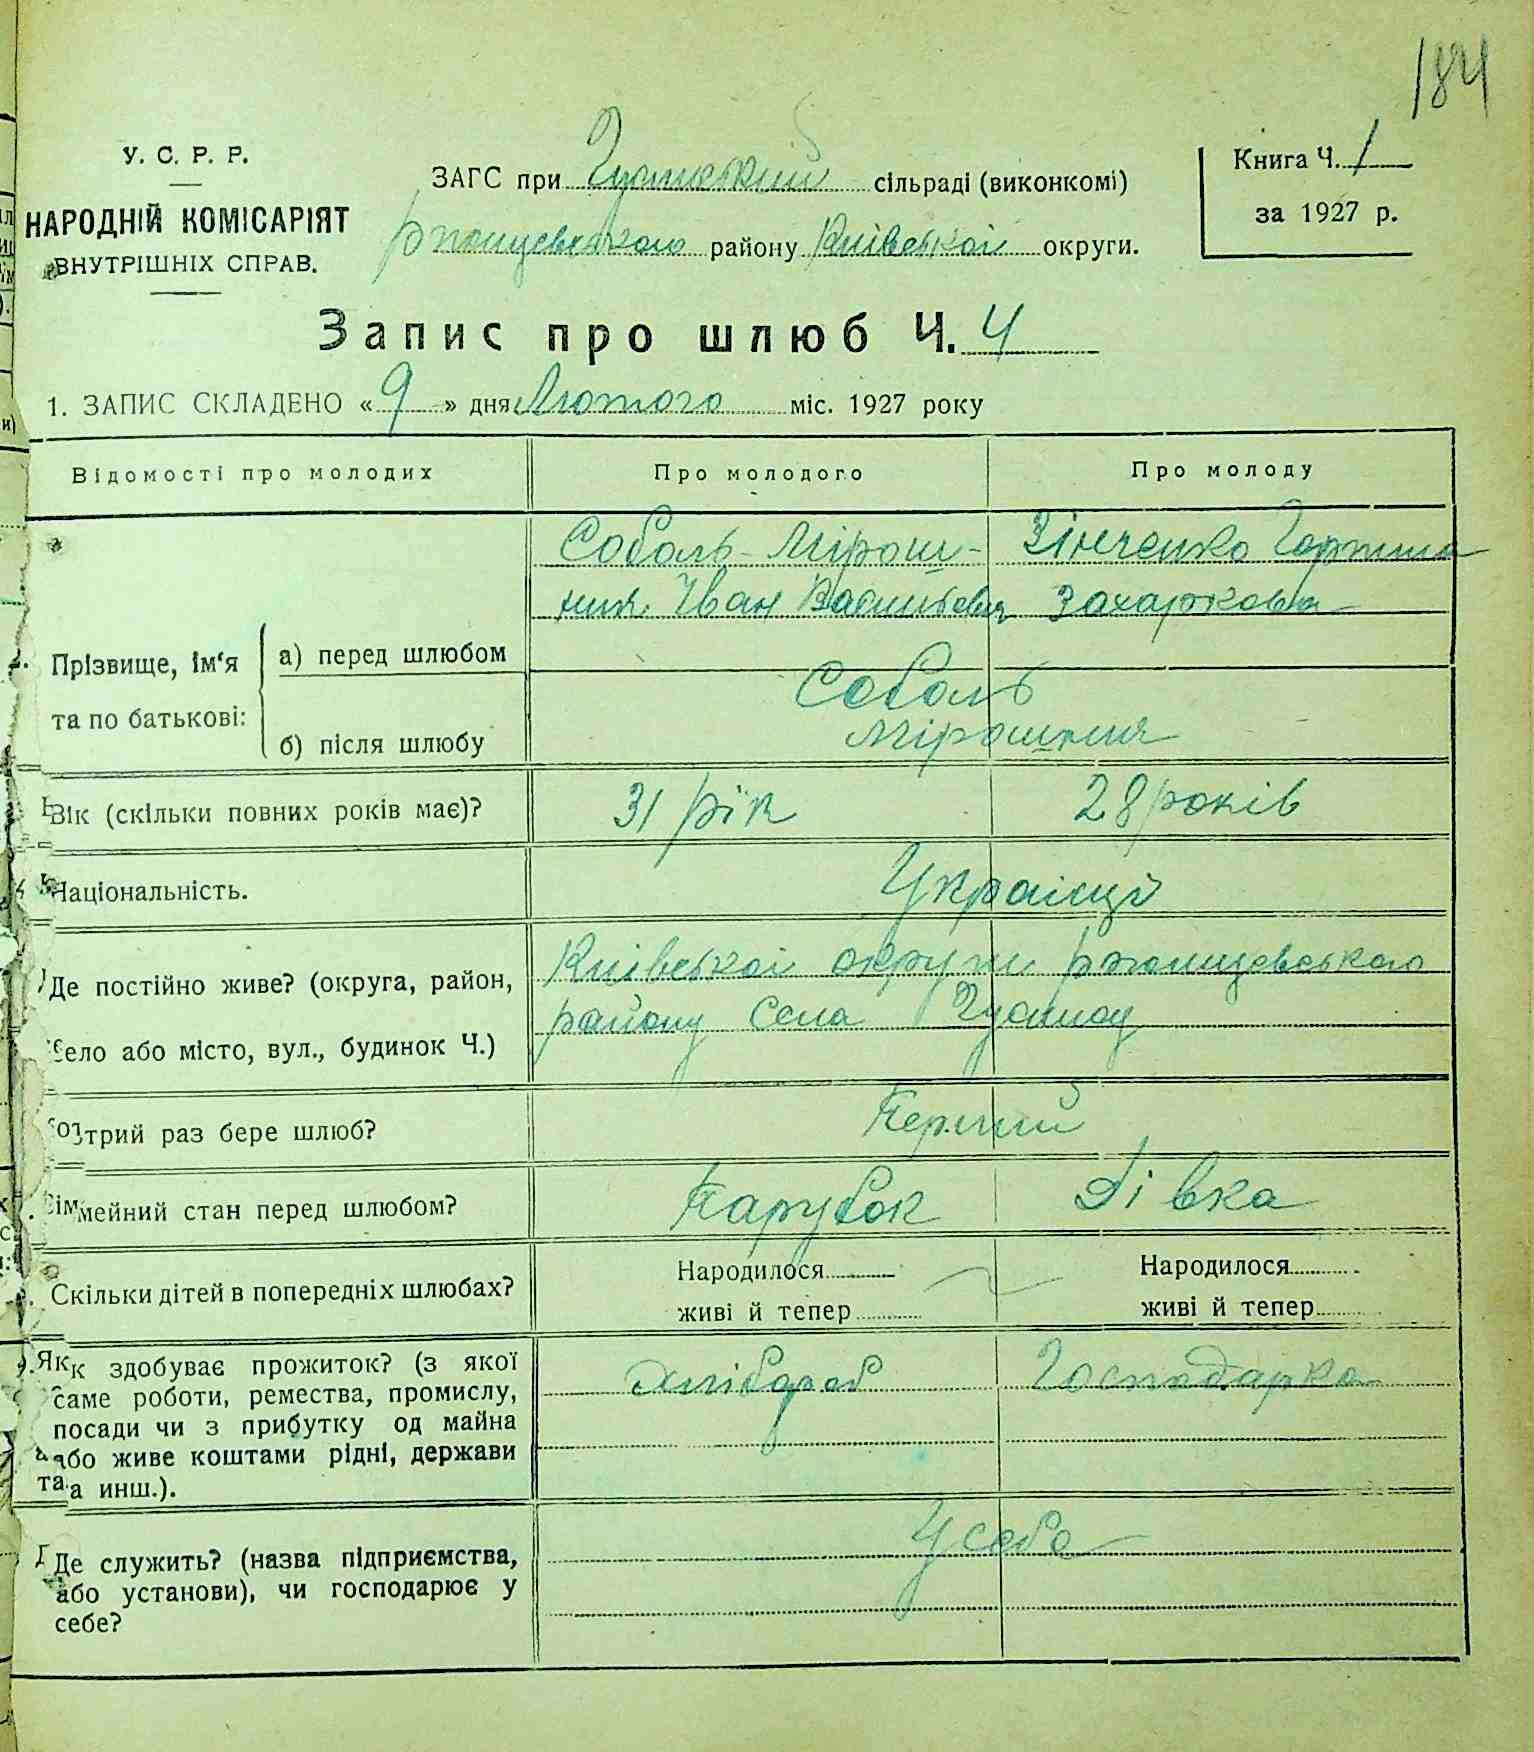 184
У. С. Р. Р.
НАРОДНІЙ КОМІСАРІЯТ
ВНУТРІШНІХ СПРАВ.
ЗАГС при сільраді (виконкомі)
району Київськоі округи.
Книга Ч. 1
за 1927 р.
Запис про шлюб Ч. 4
1. ЗАПИС СКЛАДЕНО « 9 » дня Лютого міс. 1927 року
Відомості про молодих Про молодого Про молоду
Соболь-Мірош- Зінченко Горпина
ник Іван Васильович Захарковна
Прізвище, ім'я
та по батькові:
а) перед шлюбом
б) після шлюбу
Соболь
Мірошник
Вік (скільки повних років має)? 31 рік 28 років
Національність. Украінці
Де постійно живе? (округа, район,
село або місто, вул., будинок Ч.)
Київськоі округи ржищевського
району села
котрий раз бере шлюб? Перший
Сімейний стан перед шлюбом? Парубок Дівка
Скільки дітей в попередніх шлюбах?
Народилося
живі й тепер
Народилося
живі й тепер
Як здобуває прожиток? (з якої
саме роботи, ремества, промислу,
посади чи з прибутку од майна
або живе коштами рідні, держави
та инш.).
Хлібороб Господарка
Де служить? (назва підприємства,
або установи), чи господарює у
себе?
У себе